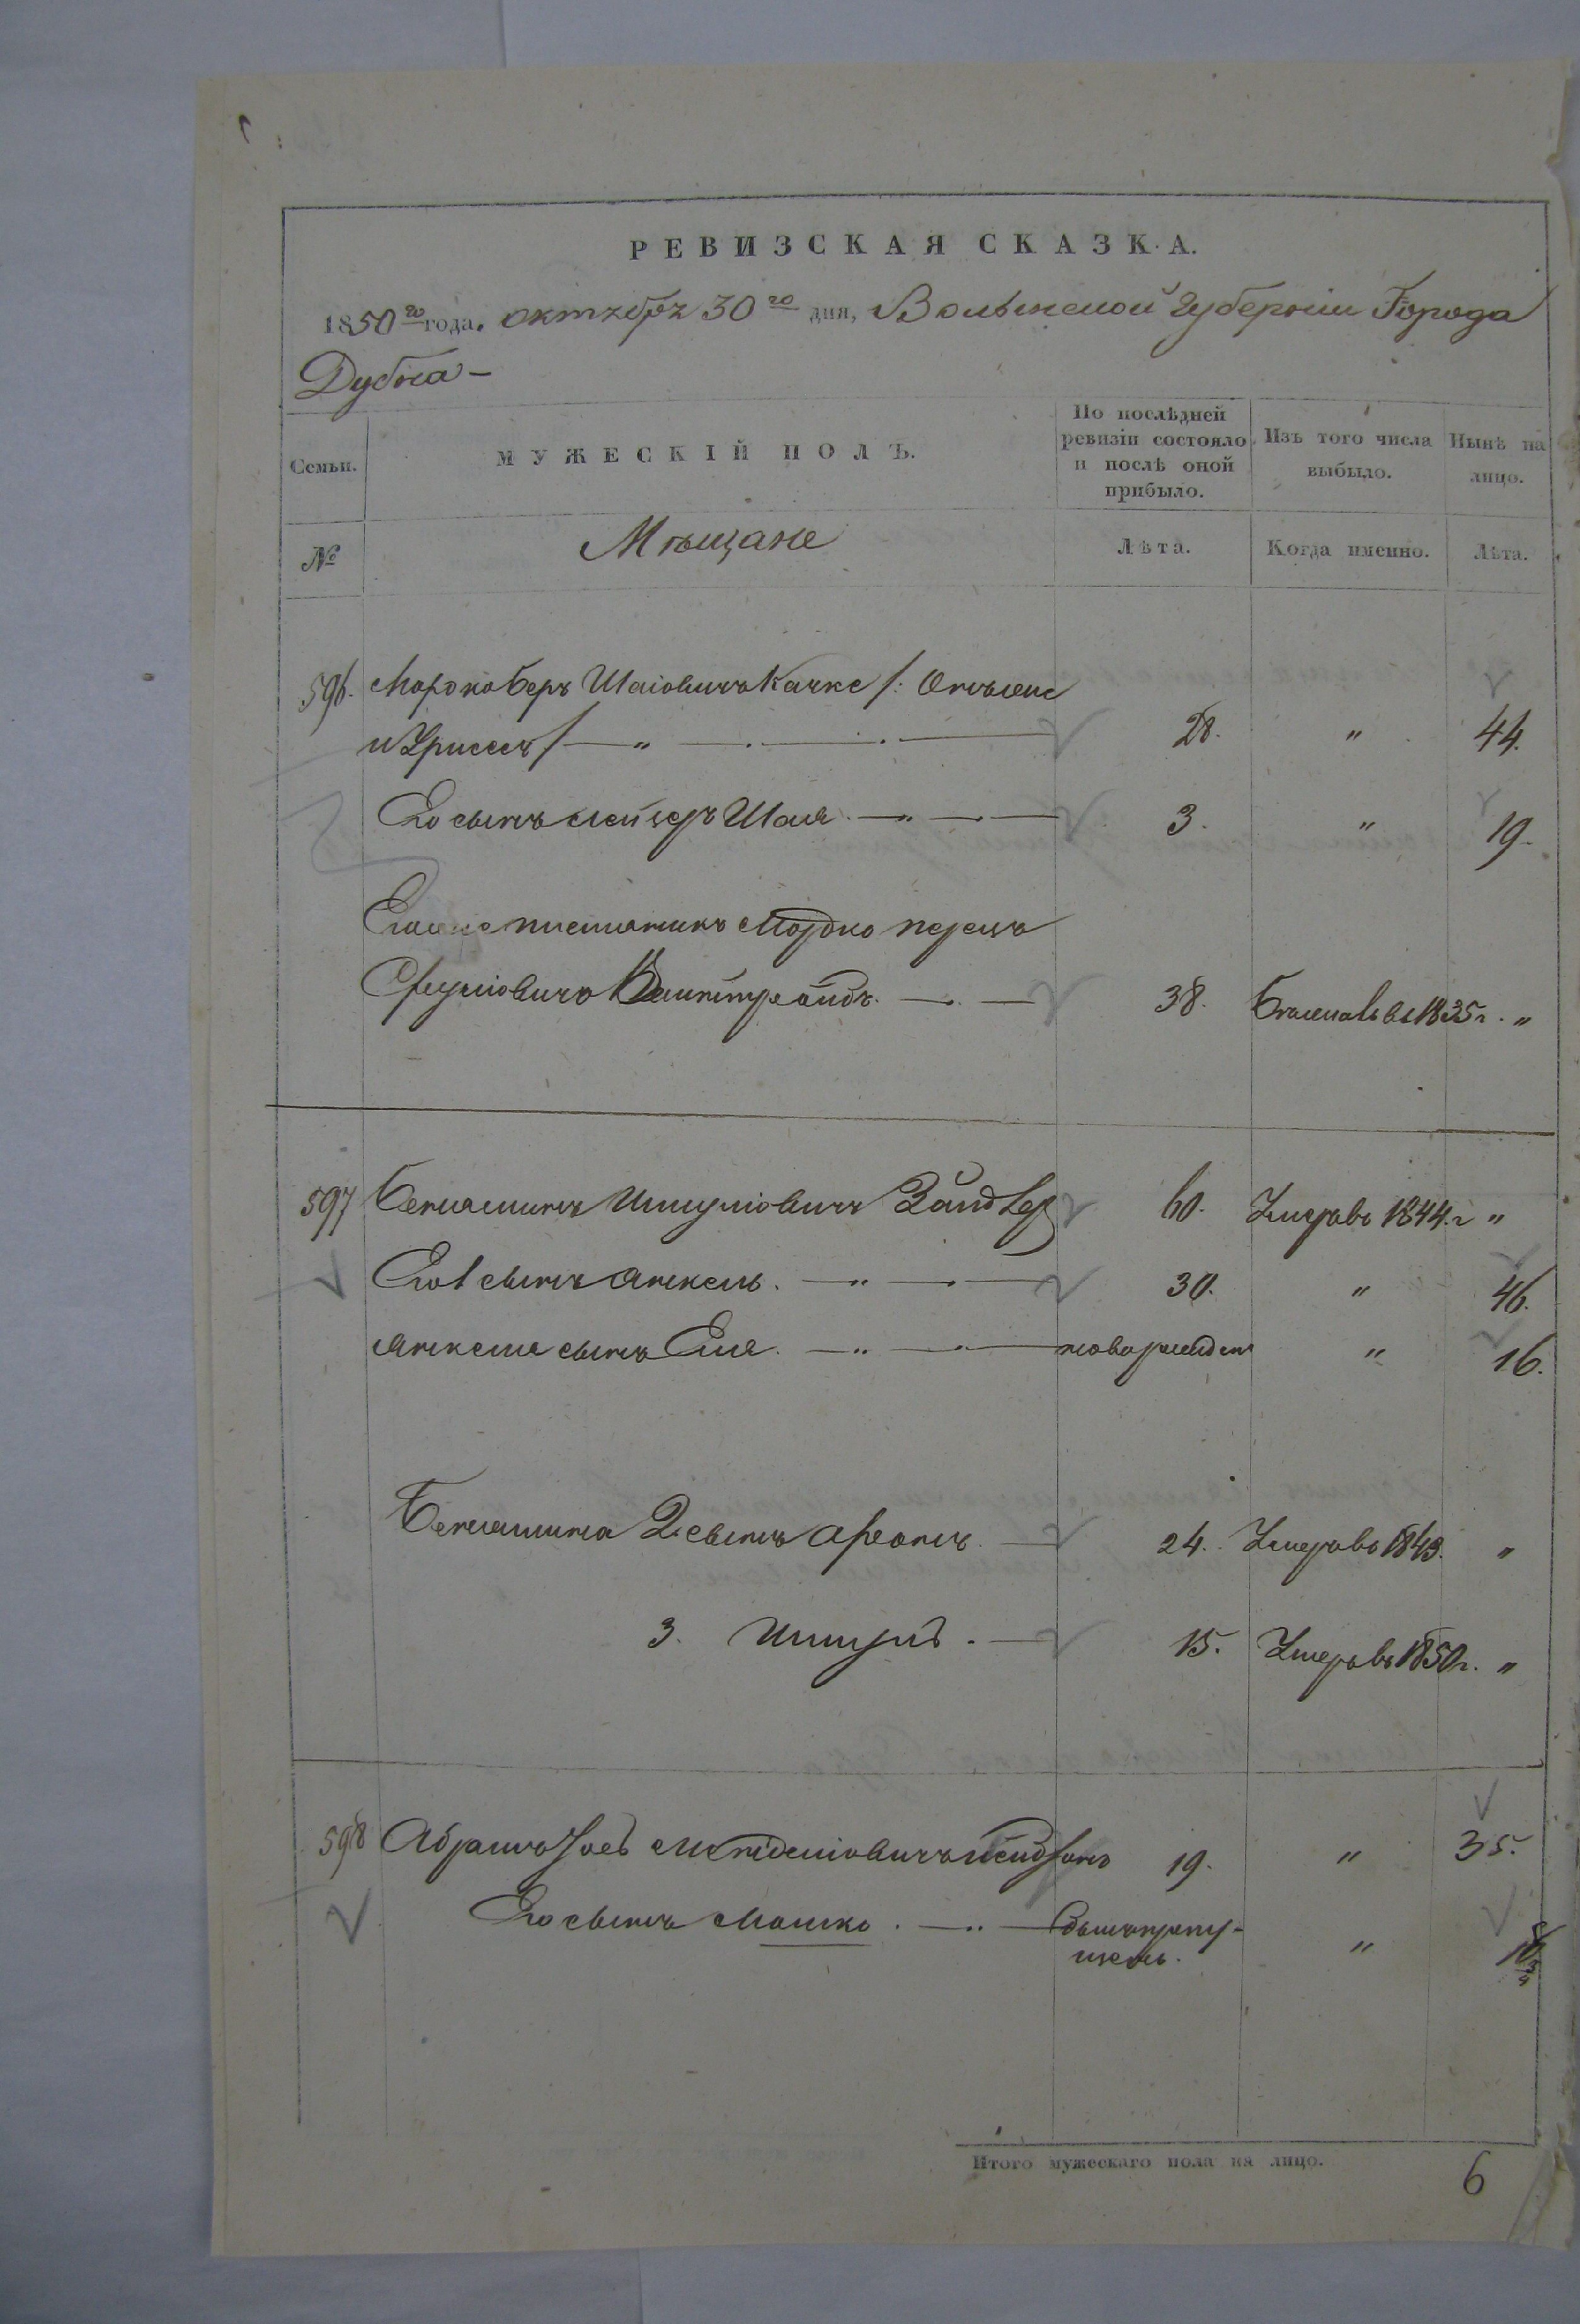 РЕВИЗСКАЯ СКАЗКА.
1850го года. октября 30го дня, Волынской Губернии Города
Дубна —
Семьи.
МУЖЕСКІЙ ПОЛЪ.
По послѣдней ревизіи состояло и послѣ оной прибыло.
Изъ того числа выбыло.
Нынѣ на лицо.
№
Мѣщане
Лѣта.
Когда именно.
Лѣта.
596. Мордко Беръ Шаіовичъ
28. " 44.
Его сынъ Лейзеръ Шая 3. " 19.
племянникъ Мордко Перецъ
38. 1835 г. "
597 Беніаминъ Шмулiовичъ 60. Умеръ въ 1844 г "
Его 1 сынъ Янкель. 30. " 46.
Янкеля сынъ Еля. новорожден " 16.
Беніамина 2. сынъ Аронъ. 24. Умеръ въ 1843. "
3. Шмуль. 15. Умеръ въ 1850 г. "
598 Абрамъ 19. " 35.
Его сынъ Мошко. былъ пропу-
щенъ. "
Итого мужескаго пола на лицо. 6